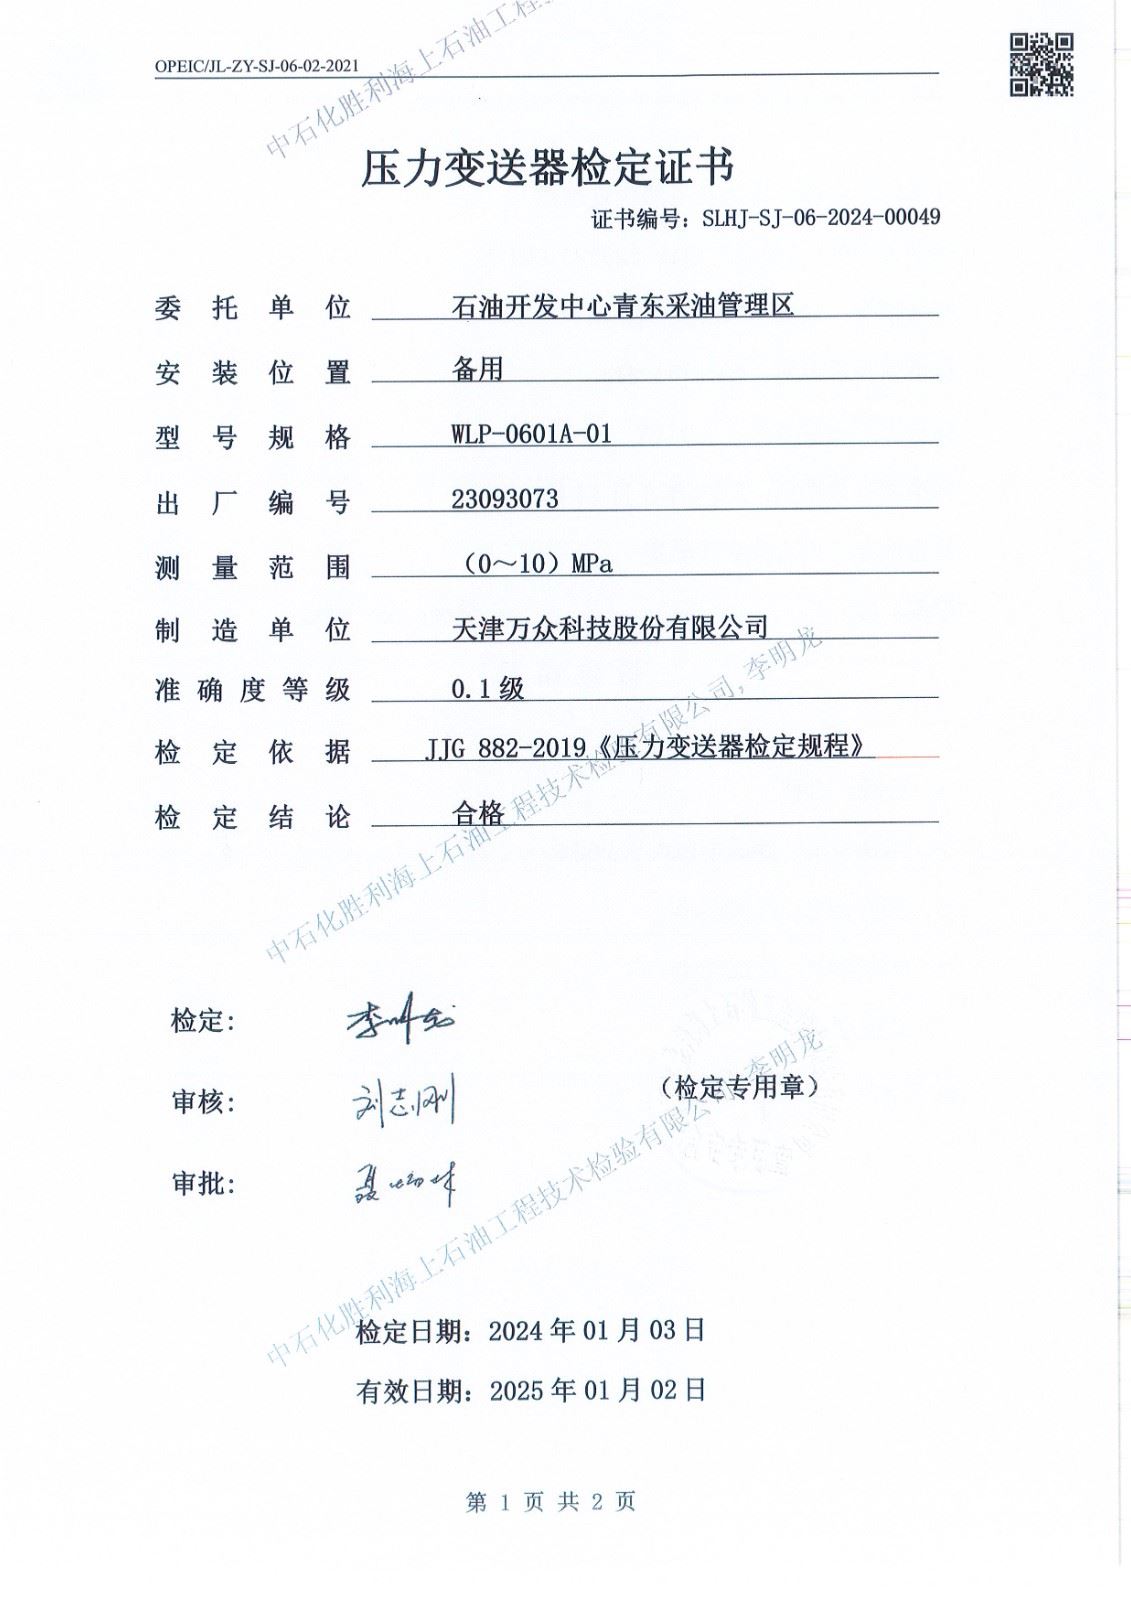 OPEIC/JL-ZY-SJ-06-02-2021
中石化胜利海上石油工程
压力变送器检定证书
证书编号：SLHJ-SJ-06-2024-00049
委托单位 石油开发中心青东采油管理区
安装位置 备用
型号规格 WLP-0601A-01
出厂编号 23093073
测量范围 （0～10）MPa
制造单位 天津万众科技股份有限公司
准确度等级 0.1级
检定依据 JJG 882-2019《压力变送器检定规程》
检定结论 合格
中石化胜利海上石油工程技术检验有限公司, 李明龙
检定： 李明龙
审核： 刘志刚
（检定专用章）
审批：
中石化胜利海上石油工程技术检验有限公司, 李明龙
检定日期：2024年01月03日
有效日期：2025年01月02日
第 1 页 共 2 页